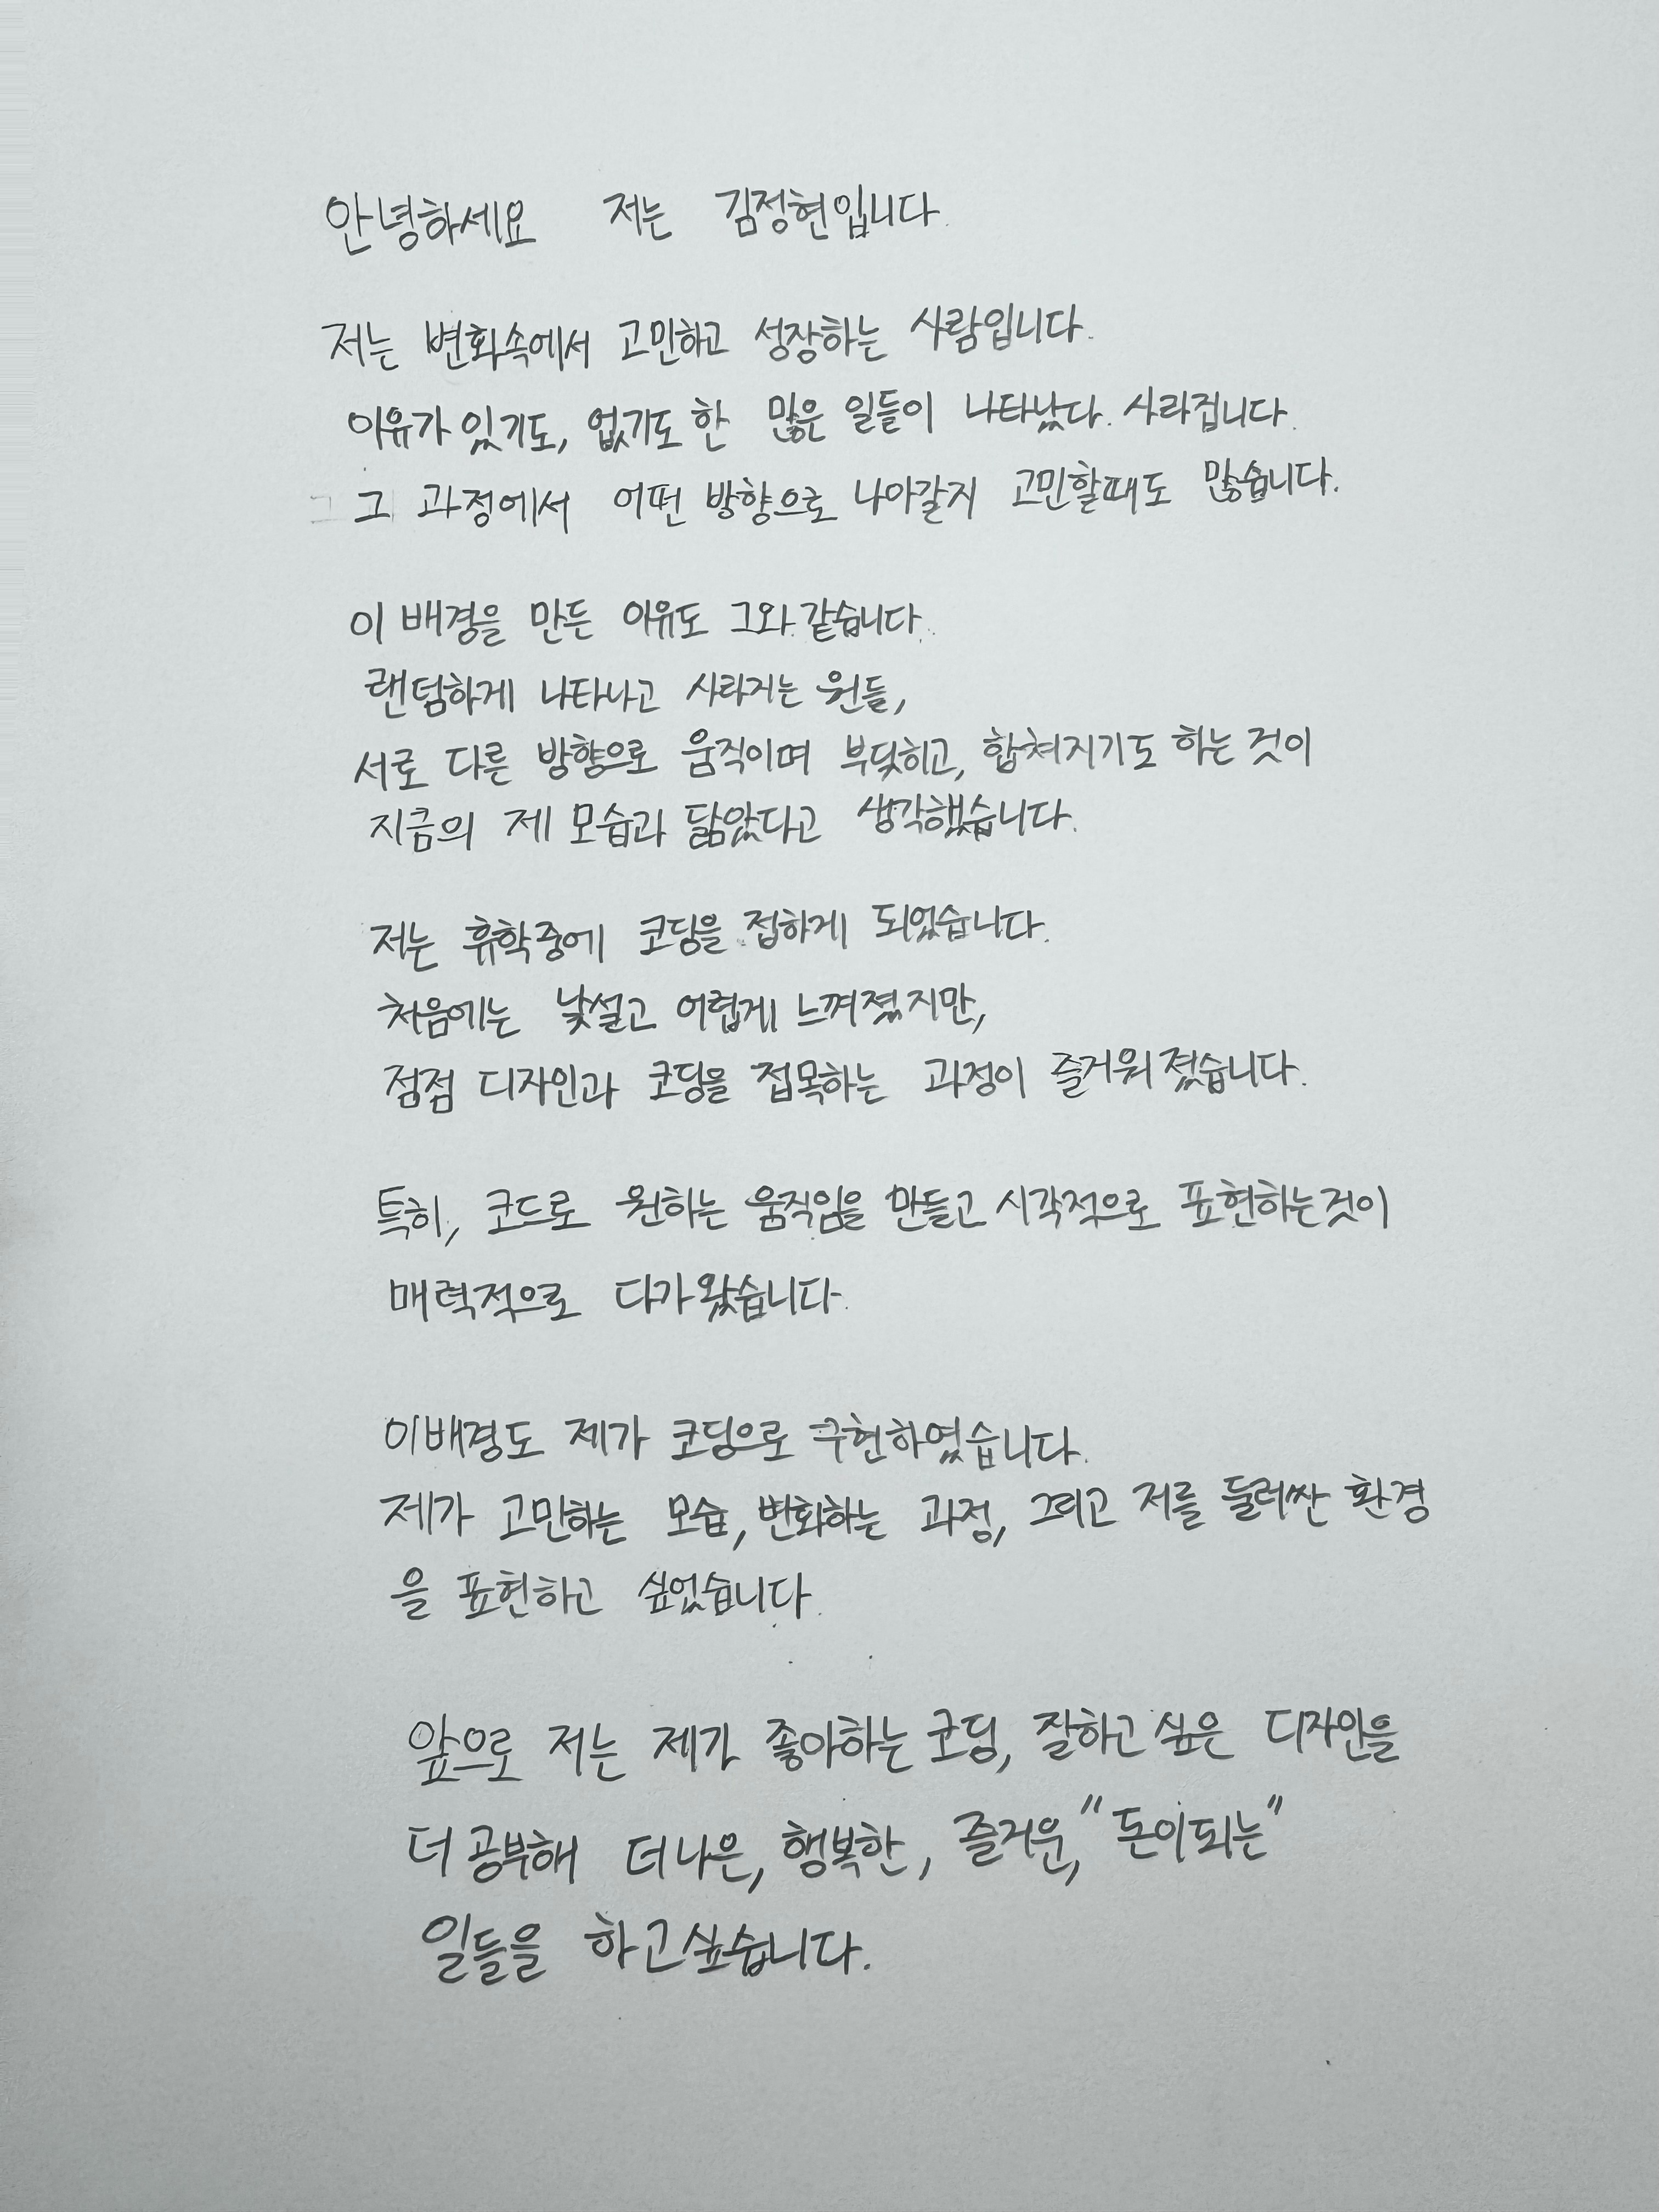 안녕하세요 저는 김정현입니다.
저는 변화속에서 고민하고 성장하는 사람입니다.
이유가 있기도, 없기도 한 많은 일들이 나타났다. 사라집니다.
그 과정에서 어떤 방향으로 나아갈지 고민할때도 많습니다.
이 배경을 만든 이유도 그와 같습니다.
랜덤하게 나타나고 사라지는 원들,
서로 다른 방향으로 움직이며 부딪히고, 합쳐지기도 하는 것이
지금의 제 모습과 닮았다고 생각했습니다.
저는 휴학중에 코딩을 접하게 되었습니다.
처음에는 낯설고 어렵게 느껴졌지만,
점점 디자인과 코딩을 접목하는 과정이 즐거워졌습니다.
특히, 코드로 원하는 움직임을 만들고 시각적으로 표현하는것이
매력적으로 다가왔습니다.
이배경도 제가 코딩으로 구현하였습니다.
제가 고민하는 모습, 변화하는 과정, 그리고 저를 둘러싼 환경
을 표현하고 싶었습니다.
앞으로 저는 제가 좋아하는 코딩, 잘하고 싶은 디자인을
더 공부해 더 나은, 행복한, 즐거운, "돈이되는"
일들을 하고싶습니다.